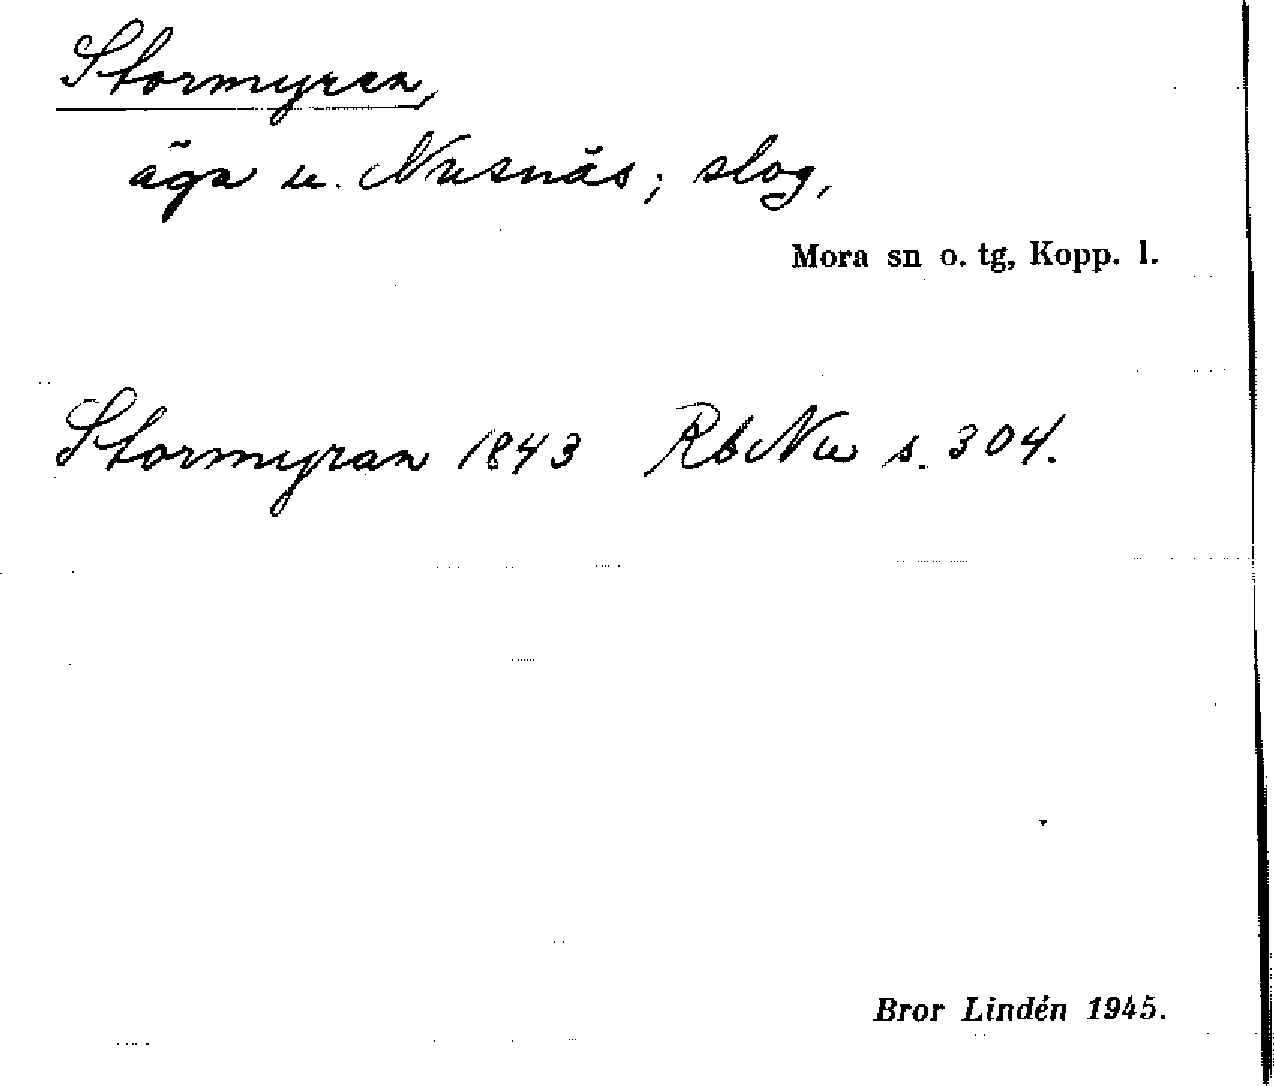 Stormyren,
äga u. Nusnäs; slog,
Mora sn o. tg, Kopp. l.
Stormyran 1843 RbNu s. 304.
Bror Lindén 1945.